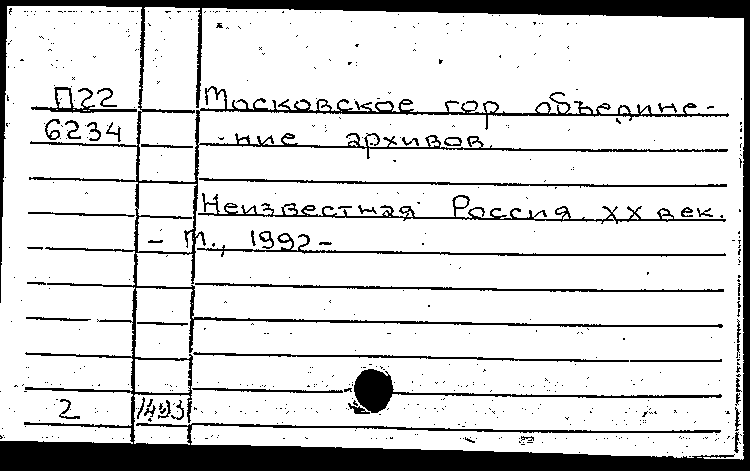 П22 Московское гор. объедине-
6234 -ние архивов.
Неизвестная Россия. XX век.
- М., 1992-
2